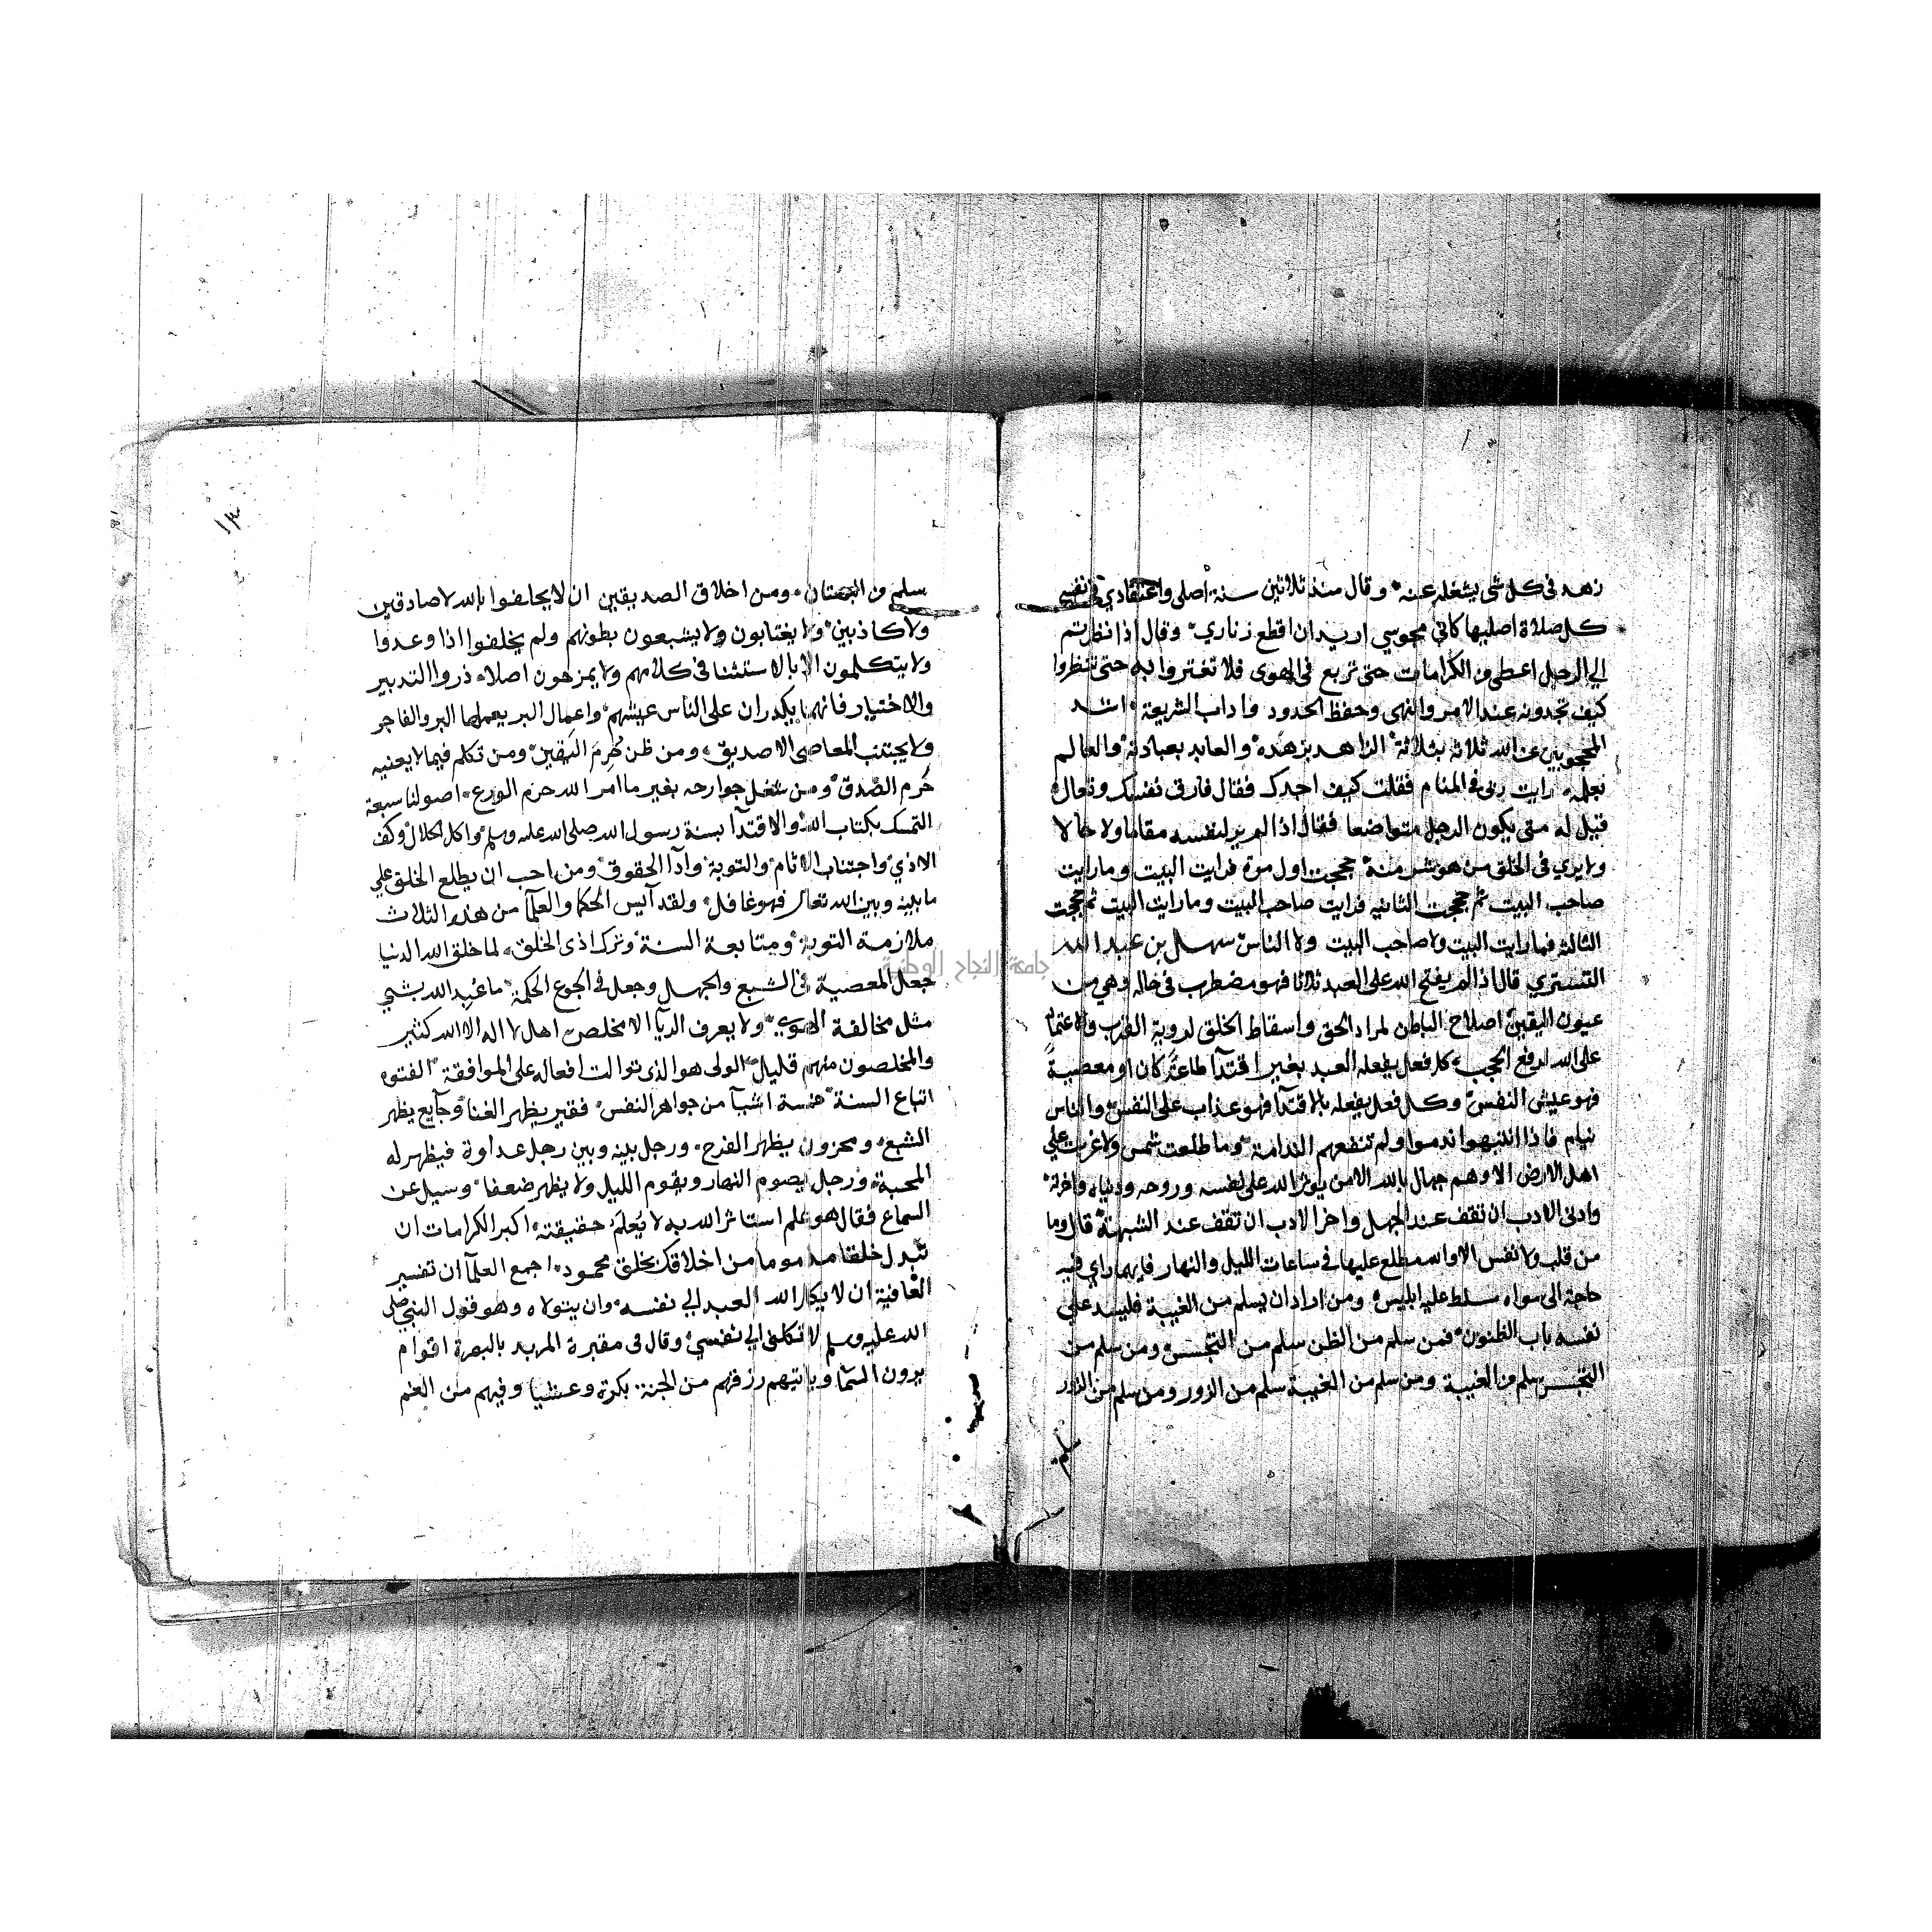 زهد في كل شي يشغله عنه وقال منذ ثلاثين سنة اصلي واعتقادي في نفسي
كل صلاة اصليها كاني مجوسي اريد ان اقطع زناري وقال اذا نظرتم
الي الرجل اعطي من الكرامات حتى تربع في الهوى فلا تغتروا به حتى تنظروا
كيف تجدونه عند الامر والنهي وحفظ الحدود واداب الشريعة اشد
المحجوبين عن الله ثلاثه بثلاثة الزاهد بزهده والعابد بعبادته والعالم
بعلمه رايت ربى في المنام فقلت كيف اجدك فقال فارق نفسك وتعال
قيل له متى يكون الرجل متواضعا فقال اذا لم ير لنفسه مقاما ولا حالا
ولا يري في الخلق من هو شر منه حججت اول مرة فرايت البيت وما رايت
صاحب البيت ثم حججت الثانيه فرايت صاحب البيت وما رايت البيت ثم حججت
الثالثه فما رايت البيت ولا صاحب البيت ولا الناس سهل بن عبد الله
التستري قال اذا لم يفتح الله على العبد ثلاثا فهو مضطرب في حاله وهي من
عيون اليقين اصلاح الباطن لمراد الحق واسقاط الخلق لروية القرب والاعتماد
على الله لرفع الحجب كل فعل يفعله العبد بغير اقتدآ طاعة كان او معصية
فهو عيش النفس وكل فعل يفعله بالاقتدآ فهو عذاب على النفس والناس
نيام فاذا انتبهوا ندموا ولم تنفعهم الندامة وما طلعت شمس ولا غربت علي
اهل الارض الا وهم جهال بالله الا من يوثر الله على نفسه وروحه ودنياه واخرته
وادنى الادب ان تقف عند الجهل واخر الادب ان تقف عند الشبهة قال وما
من قلب ولا نفس الا والله مطلع عليها في ساعات الليل والنهار فايهما راي فيه
حاجة الى سواه سلط عليه ابليس ومن اراد ان يسلم من الغيبة فليسد علي
نفسه باب الظنون فمن سلم من الظن سلم من التجسس ومن سلم من
التجسس سلم من الغيبة ومن سلم من الغيبة سلم من الزور ومن سلم من الزور
سلم
سلم من البهتان ومن اخلاق الصديقين ان لا يحلفوا بالله لا صادقين
ولا كاذبين ولا يغتابون ولا يشبعون بطونهم ولم يخلفوا اذا وعدوا
ولا يتكلمون الا بالاستثنا في كلامهم ولا يمزحون اصلا ذروا التدبير
والاختيار فانهما يكدران على الناس عيشهم واعمال البر يعملها البر والفاجر
ولا يجتنب المعاصي الا صديق ومن ظن حُرِمَ اليقين ومن تكلم فيما لا يعنيه
حُرم الصدق ومن شغل جوارحه بغير ما امر الله حرم الورع اصولنا سبعة
التمسك بكتاب الله والاقتدآ بسنة رسول الله صلى الله عليه وسلم واكل الحلال وكف
الاذي واجتناب الاثام والتوبة وادآ الحقوق ومن احب ان يطلع الخلق علي
ما بينه وبين الله تعالى فهو غافل ولقد آيس الحكما والعلمآ من هذه الثلاث
ملازمة التوبة ومتابعة السنة وترك اذى الخلق لما خلق الله الدنيا
جعل المعصية في الشبع والجهل وجعل في الجوع الحكمة ما عُبِد الله بشي
مثل مخالفة الهوي ولا يعرف الريآ الا مخلص اهل لا اله الا الله كثير
والمخلصون منهم قليل الولى هو الذى توالت افعاله على الموافقة الفتوه
اتباع السنة خمسة اشيآ من جواهر النفس فقير يظهر الغنا وجآيع يظهر
الشبع ومحزون يظهر الفرح ورجل بينه وبين رجل عداوة فيظهر له
المحبة ورجل يصوم النهار ويقوم الليل ولا يظهر ضعفا وسيل عن
السماع فقال هو علم استاثر الله به لا يُعلَم حقيقته اكبر الكرامات ان
تبدل خلقا مذموما من اخلاقك بخلق محمود اجمع العلمآ ان تفسير
العافية ان لا يكل الله العبد الي نفسه وان يتولاه وهو قول النبي صلى
الله عليه وسلم لا تكلنى الي نفسي وقال في مقبرة المربد بالبصرة اقوام
يرون السما وياتيهم رزقهم من الجنة بكرة وعشيا وفيهم من العلم
جامعة النجاح الوطنية